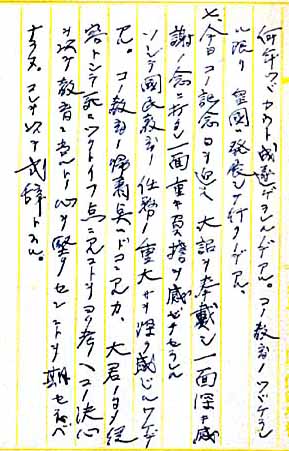 何年ツトカツト成遂デラルゝノデアル。コノ教育ノツトケラレル
ニ限リ皇国ハ発展シテ行クノデアル、
七、今日コノ記念日ヲ迎ヘ大詔ヲ奉戴シ一面深キ感
謝ノ念ニ打タレ一面重キ負担ヲ感ゼサセラレル
ソシテ国民教育ノ任務ノ重大サヲ深ク感ジルワケデ
アル。コノ教育ノ帰着点ハドコニアルカ、大君ノ
トシテ死ニツクトイフ点ニアルコトヲヨク考ヘコノ決心
ヲ以テ教育ニ当ルノ心ヲ堅クセンコトヲ期セネバ
ナラヌ。コレヲ以テ式辞トスル。